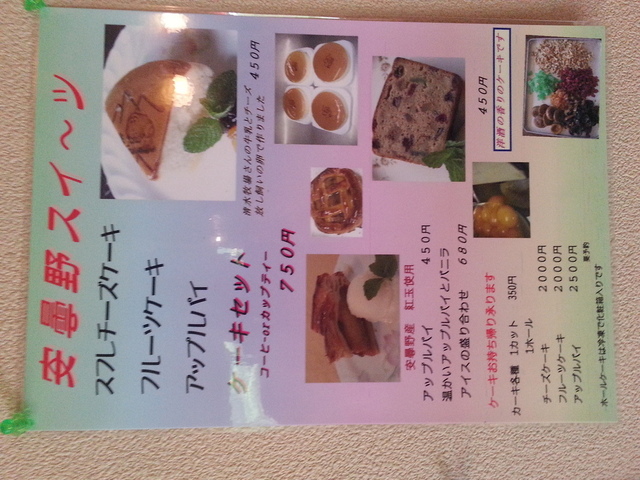 安曇野スイ～ツ
スフレチーズケーキ
フルーツケーキ
アップルパイ
ケーキセット
コーヒーorカップティー
750円
清水牧場さんの牛乳とチーズ 450円
放し飼いの卵で作りました
450円
洋酒の香りのケーキです
安曇野産 紅玉使用
アップルパイ 450円
温かいアップルパイとバニラ
アイスの盛り合わせ 680円
ケーキお持ち帰り承ります
カーキ各種 1カット 350円
1ホール
チーズケーキ 2000円
フルーツケーキ 2000円
アップルパイ 2500円
要予約
ホールケーキは冷凍で化粧箱入りです